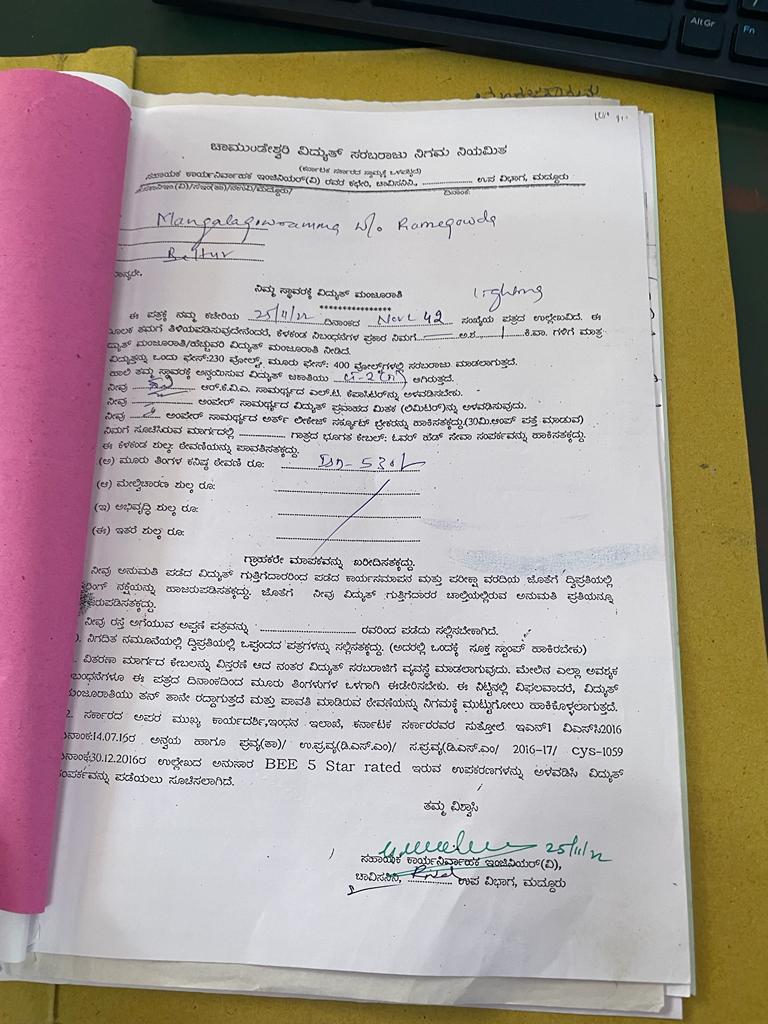 Alt Gr
Fn
ಚಾಮುಂಡೇಶ್ವರಿ ವಿದ್ಯುತ್ ಸರಬರಾಜು ನಿಗಮ ನಿಯಮಿತ
(ಕರ್ನಾಟಕ ಸರ್ಕಾರದ ಸ್ವಾಮ್ಯಕ್ಕೆ ಒಳಪಟ್ಟಿದೆ)
ಸಹಾಯಕ ಕಾರ್ಯನಿರ್ವಾಹಕ ಇಂಜಿನಿಯರ್(ವಿ) ರವರ ಕಛೇರಿ, ಚಾವಿಸನಿನಿ, ................ ಉಪ ವಿಭಾಗ, ಮದ್ದೂರು
ದಿನಾಂಕ:
Mangalagowramma W/o Ramegowda
Bettur
ನಿಮ್ಮ ಸ್ಥಾವರಕ್ಕೆ ವಿದ್ಯುತ್ ಮಂಜೂರಾತಿ
Lighting
****************
ಈ ಪತ್ರಕ್ಕೆ ನಮ್ಮ ಕಚೇರಿಯ 25/11/22 ದಿನಾಂಕದ 42 ಸಂಖ್ಯೆಯ ಪತ್ರದ ಉಲ್ಲೇಖವಿದೆ. ಈ
ಮೂಲಕ ತಮಗೆ ತಿಳಿಯಪಡಿಸುವುದೇನೆಂದರೆ, ಕೆಳಕಂಡ ನಿಬಂಧನೆಗಳ ಪ್ರಕಾರ ನಿಮಗೆ ........ ಅ.ಶ 1 ಕಿ.ವಾ. ಗಳಿಗೆ ಮಾತ್ರ
ವಿದ್ಯುತ್ ಮಂಜೂರಾತಿ/ಹೆಚ್ಚುವರಿ ವಿದ್ಯುತ್ ಮಂಜೂರಾತಿ ನೀಡಿದೆ.
ವಿದ್ಯುತ್ತನ್ನು ಒಂದು ಫೇಸ್:230 ವೋಲ್ಟ್ಸ್, ಮೂರು ಫೇಸ್: 400 ವೋಲ್ಟ್‌ಗಳಲ್ಲಿ ಸರಬರಾಜು ಮಾಡಲಾಗುತ್ತದೆ.
ಹಾಲಿ ತಮ್ಮ ಸ್ಥಾವರಕ್ಕೆ ಅನ್ವಯಿಸುವ ವಿದ್ಯುತ್ ಜಕಾತಿಯು ಆಗಿರುತ್ತದೆ.
ನೀವು ಆರ್.ಕೆ.ವಿ.ಎ. ಸಾಮರ್ಥ್ಯದ ಎಲ್.ಟಿ. ಕೆಪಾಸಿಟರ್‌ನ್ನು ಅಳವಡಿಸಬೇಕು.
ನೀವು ........ ಅಂಪೇರ್ ಸಾಮರ್ಥ್ಯದ ವಿದ್ಯುತ್ ಪ್ರವಾಹದ ಮಿತಕ (ಲಿಮಿಟರ್)ನ್ನು ಅಳವಡಿಸುವುದು.
ನೀವು ........ ಅಂಪೇರ್ ಸಾಮರ್ಥ್ಯದ ಅರ್ತ್ ಲೀಕೇಜ್ ಸರ್ಕ್ಯೂಟ್ ಬ್ರೇಕರನ್ನು ಹಾಕಿಸತಕ್ಕದ್ದು.(30ಮಿ.ಆಂಪ್ ಪತ್ತೆ ಮಾಡುವ)
ನಿಮಗೆ ಸೂಚಿಸಿರುವ ಮಾರ್ಗದಲ್ಲಿ ............ ಗಾತ್ರದ ಭೂಗತ ಕೇಬಲ್: ಓವರ್ ಹೆಡ್ ಸೇವಾ ಸಂಪರ್ಕವನ್ನು ಹಾಕಿಸತಕ್ಕದ್ದು.
ಈ ಕೆಳಕಂಡ ಶುಲ್ಕ ಠೇವಣಿಯನ್ನು ಪಾವತಿಸತಕ್ಕದ್ದು.
(ಅ) ಮೂರು ತಿಂಗಳ ಕನಿಷ್ಠ ಠೇವಣಿ ರೂ: 530/-
(ಆ) ಮೇಲ್ವಿಚಾರಣ ಶುಲ್ಕ ರೂ:
(ಇ) ಅಭಿವೃದ್ಧಿ ಶುಲ್ಕ ರೂ:
(ಈ) ಇತರೆ ಶುಲ್ಕ ರೂ:
ಗ್ರಾಹಕರೇ ಮಾಪಕವನ್ನು ಖರೀದಿಸತಕ್ಕದ್ದು.
ನೀವು ಅನುಮತಿ ಪಡೆದ ವಿದ್ಯುತ್ ಗುತ್ತಿಗೆದಾರರಿಂದ ಪಡೆದ ಕಾರ್ಯಸಮಾಪನ ಮತ್ತು ಪರೀಕ್ಷಾ ವರದಿಯ ಜೊತೆಗೆ ದ್ವಿಪ್ರತಿಯಲ್ಲಿ
ನಕ್ಷೆಯನ್ನು ಹಾಜರುಪಡಿಸತಕ್ಕದ್ದು. ಜೊತೆಗೆ ನೀವು ವಿದ್ಯುತ್ ಗುತ್ತಿಗೆದಾರರ ಚಾಲ್ತಿಯಲ್ಲಿರುವ ಅನುಮತಿ ಪ್ರತಿಯನ್ನೂ
ನೀವು ರಸ್ತೆ ಅಗೆಯುವ ಅಪ್ಪಣೆ ಪತ್ರವನ್ನು .................... ರವರಿಂದ ಪಡೆದು ಸಲ್ಲಿಸಬೇಕಾಗಿದೆ.
). ನಿಗದಿತ ನಮೂನೆಯಲ್ಲಿ ದ್ವಿಪ್ರತಿಯಲ್ಲಿ ಒಪ್ಪಂದದ ಪತ್ರಗಳನ್ನು ಸಲ್ಲಿಸತಕ್ಕದ್ದು. (ಅದರಲ್ಲಿ ಒಂದಕ್ಕೆ ಸೂಕ್ತ ಸ್ಟಾಂಪ್ ಹಾಕಿರಬೇಕು)
. ವಿತರಣಾ ಮಾರ್ಗದ ಕೇಬಲನ್ನು ವಿಸ್ತರಣೆ ಆದ ನಂತರ ವಿದ್ಯುತ್ ಸರಬರಾಜಿಗೆ ವ್ಯವಸ್ಥೆ ಮಾಡಲಾಗುವುದು. ಮೇಲಿನ ಎಲ್ಲಾ ಅವಶ್ಯಕ
ಬಂಧನೆಗಳೂ ಈ ಪತ್ರದ ದಿನಾಂಕದಿಂದ ಮೂರು ತಿಂಗಳುಗಳ ಒಳಗಾಗಿ ಈಡೇರಿಸಬೇಕು. ಈ ನಿಟ್ಟಿನಲ್ಲಿ ವಿಫಲವಾದರೆ, ವಿದ್ಯುತ್
ಮಂಜೂರಾತಿಯು ತನ್ ತಾನೇ ರದ್ದಾಗುತ್ತದೆ ಮತ್ತು ಪಾವತಿ ಮಾಡಿರುವ ಠೇವಣಿಯನ್ನು ನಿಗಮಕ್ಕೆ ಮುಟ್ಟುಗೋಲು ಹಾಕಿಕೊಳ್ಳಲಾಗುತ್ತದೆ.
2. ಸರ್ಕಾರದ ಅಪರ ಮುಖ್ಯ ಕಾರ್ಯದರ್ಶಿ,ಇಂಧನ ಇಲಾಖೆ, ಕರ್ನಾಟಕ ಸರ್ಕಾರರವರ ಸುತ್ತೋಲೆ. ಇಎನ್1 ವಿಎಸ್‌ಸಿ2016
ನಾಂಕ:14.07.16ರ ಅನ್ವಯ ಹಾಗೂ ಪ್ರವ್ಯ(ತಾ)/ ಉ.ಪ್ರವ್ಯ(ಡಿ.ಎಸ್.ಎಂ)/ ಸ.ಪ್ರವ್ಯ(ಡಿ.ಎಸ್.ಎಂ/ 2016-17/ cys-1059
ನಾಂಕ:30.12.2016ರ ಉಲ್ಲೇಖದ ಅನುಸಾರ BEE 5 Star rated ಇರುವ ಉಪಕರಣಗಳನ್ನು ಅಳವಡಿಸಿ ವಿದ್ಯುತ್
ಸಂಪರ್ಕವನ್ನು ಪಡೆಯಲು ಸೂಚಿಸಲಾಗಿದೆ.
ತಮ್ಮ ವಿಶ್ವಾಸಿ
25/11/22
ಸಹಾಯಕ ಕಾರ್ಯನಿರ್ವಾಹಕ ಇಂಜಿನಿಯರ್(ವಿ),
ಚಾವಿಸನಿನಿ, ............ ಉಪ ವಿಭಾಗ, ಮದ್ದೂರು